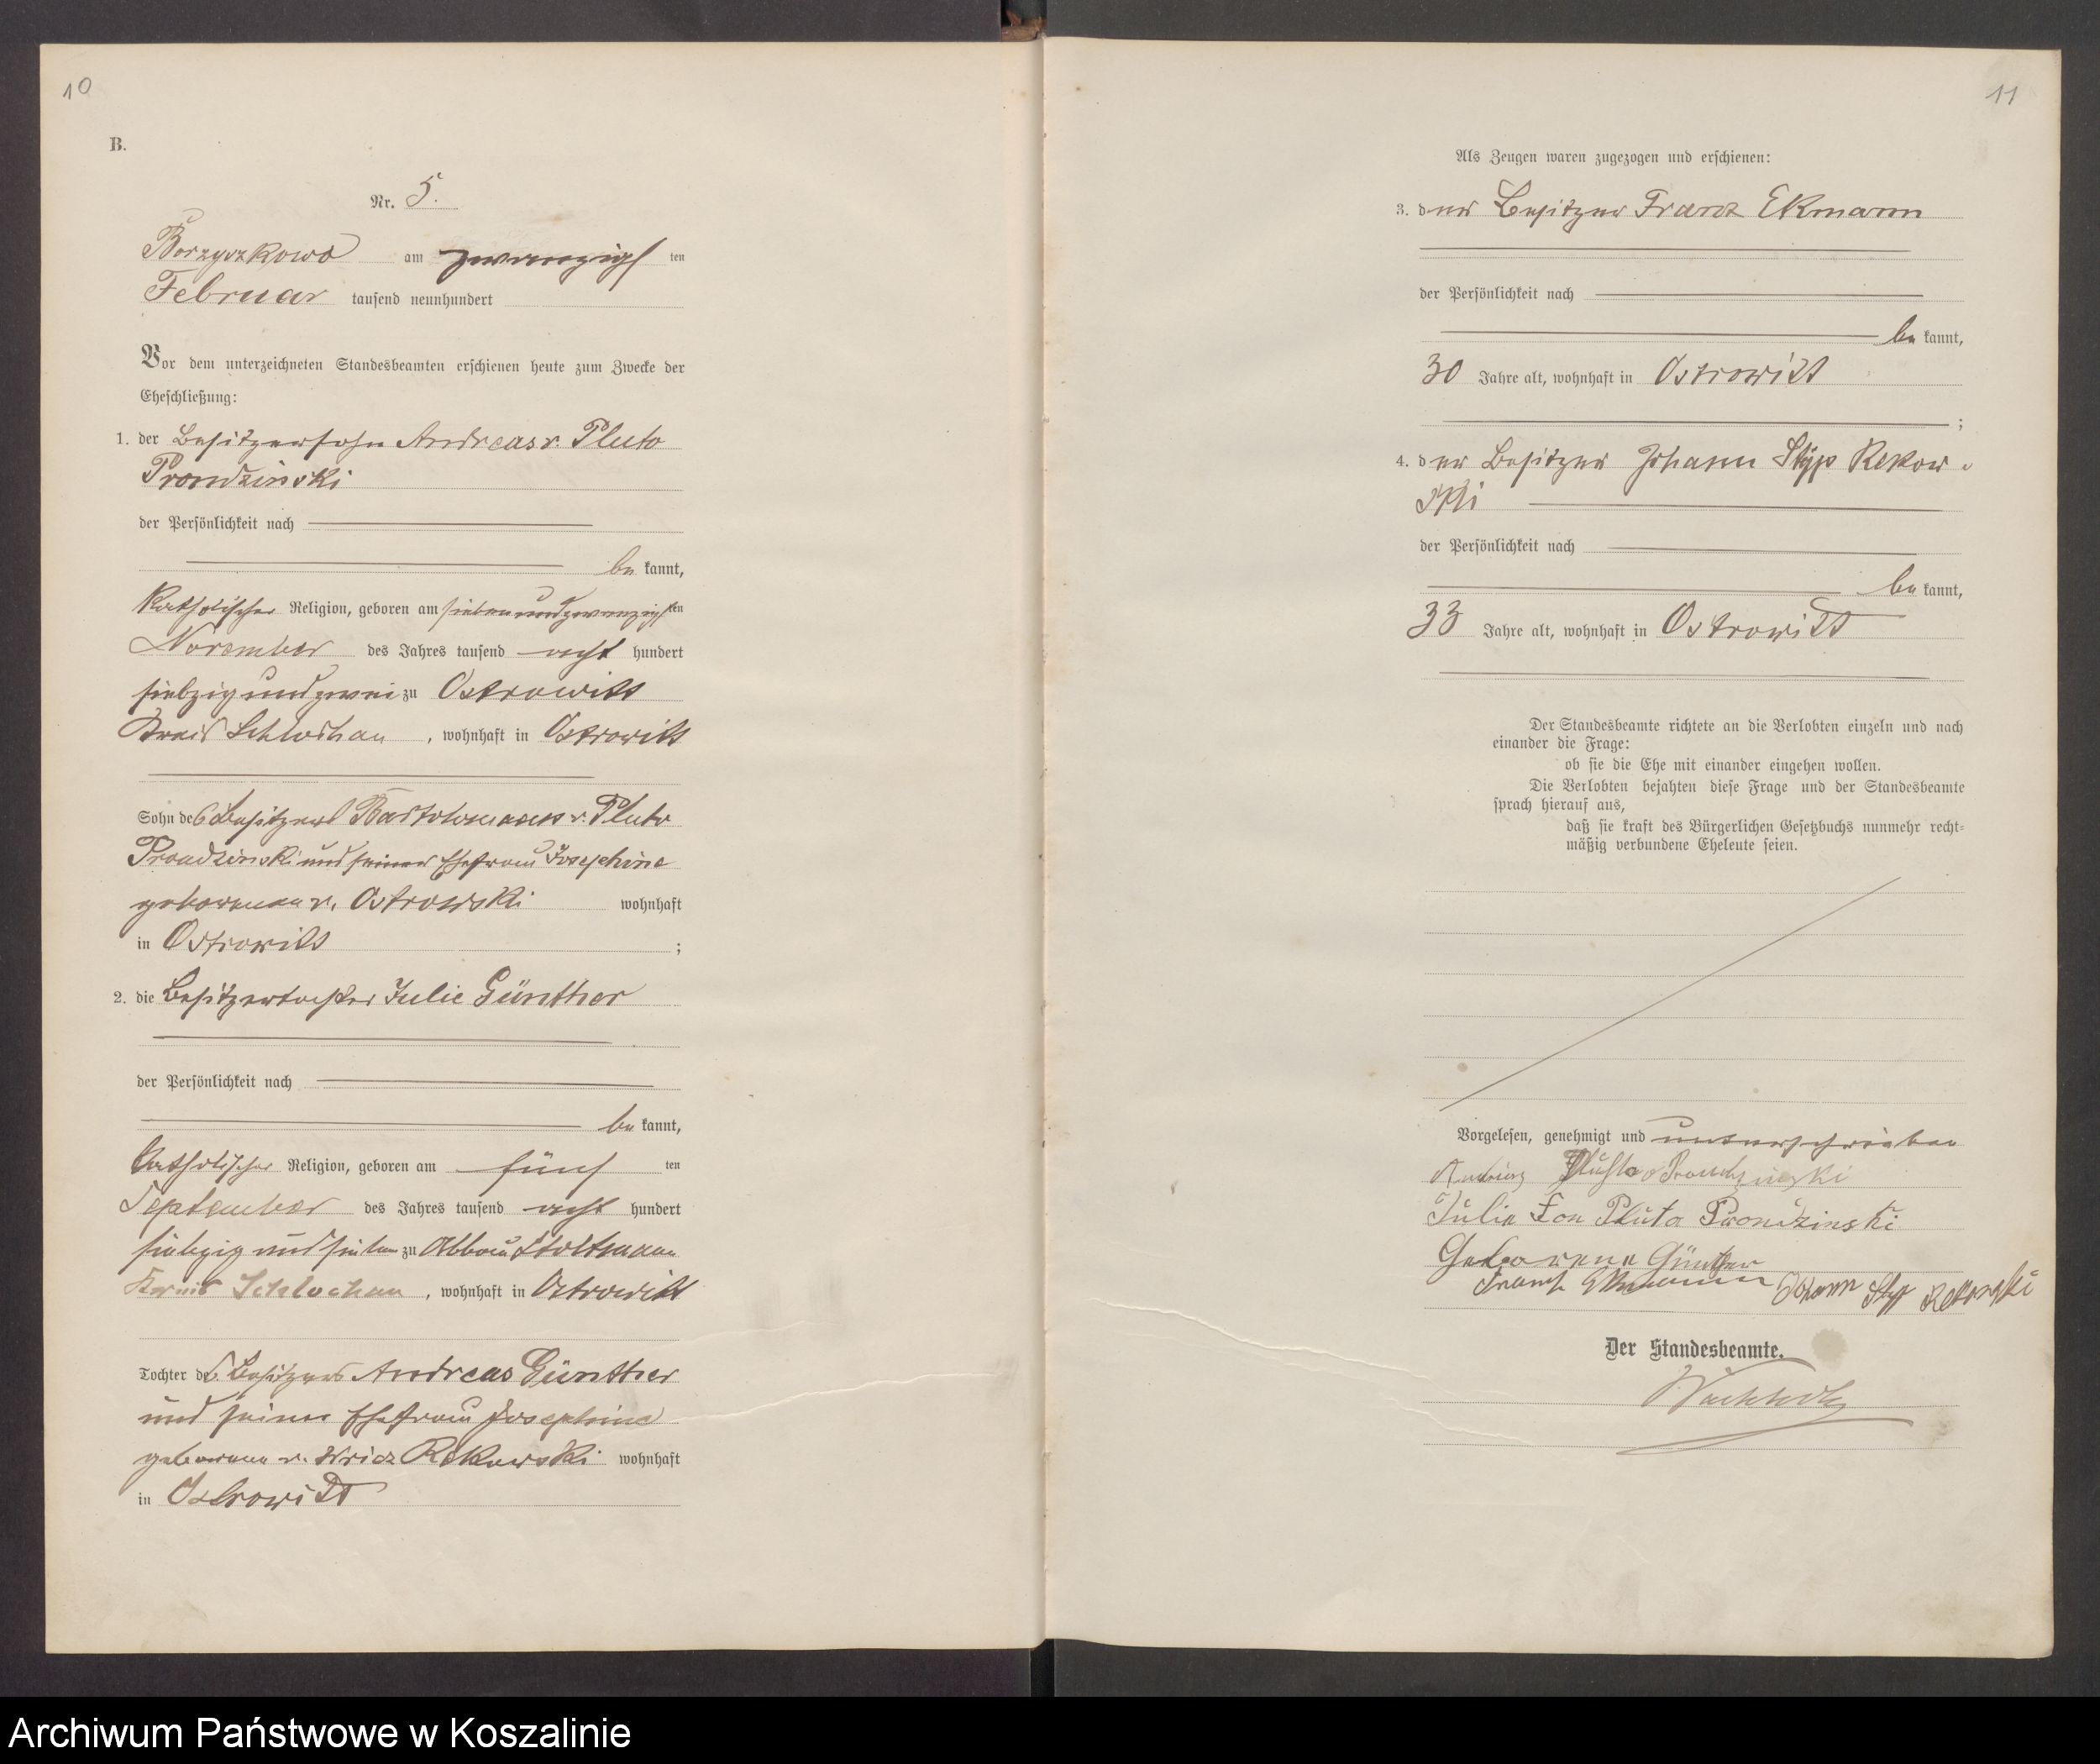 10
B.
Nr. 5.
Borzyszkowo am zwanzigsten
Februar tausend neunhundert
Vor dem unterzeichneten Standesbeamten erschienen heute zum Zwecke der
Eheschließung:
1. der Besitzersohn Andreas v. Pluto
Prondzinski
der Persönlichkeit nach
be kannt,
katholischer Religion, geboren am siebenundzwanzigsten
November des Jahres tausend acht hundert
siebzig und zwei zu Ostrowitt
Kreis Schlochau, wohnhaft in Ostrowitt
Sohn des Besitzers Bartolomaeus v. Pluto
Prondzinski und seiner Ehefrau Josephine
geborenen v. Ostrowski wohnhaft
in Ostrowitt ;
2. die Besitzertochter Julie Günther
der Persönlichkeit nach
be kannt,
katholischer Religion, geboren am fünf ten
September des Jahres tausend acht hundert
siebzig und sieben zu Abbau Stoltmann
Kreis Schlochau, wohnhaft in Ostrowitt
Tochter des Besitzers Andreas Günther
und seiner Ehefrau Josephine
geborene v. Wricz Rekowski wohnhaft
in Ostrowitt
11
Als Zeugen waren zugezogen und erschienen:
3. der Besitzer Franz Ekmann
der Persönlichkeit nach
be kannt,
30 Jahre alt, wohnhaft in Ostrowitt
;
4. der Besitzer Johann Styp Rekow-
ski
der Persönlichkeit nach
be kannt,
33 Jahre alt, wohnhaft in Ostrowitt
Der Standesbeamte richtete an die Verlobten einzeln und nach
einander die Frage:
ob sie die Ehe mit einander eingehen wollen.
Die Verlobten bejahten diese Frage und der Standesbeamte
sprach hierauf aus,
daß sie kraft des Bürgerlichen Gesetzbuchs nunmehr recht-
mäßig verbundene Eheleute seien.
Vorgelesen, genehmigt und unterschrieben
Pluto Prondzinski
Julie Fon Pluto Prondzinski
Geborene Günther
Franz Ekmann Johann Styp Rekowski
Der Standesbeamte.
Archiwum Państwowe w Koszalinie